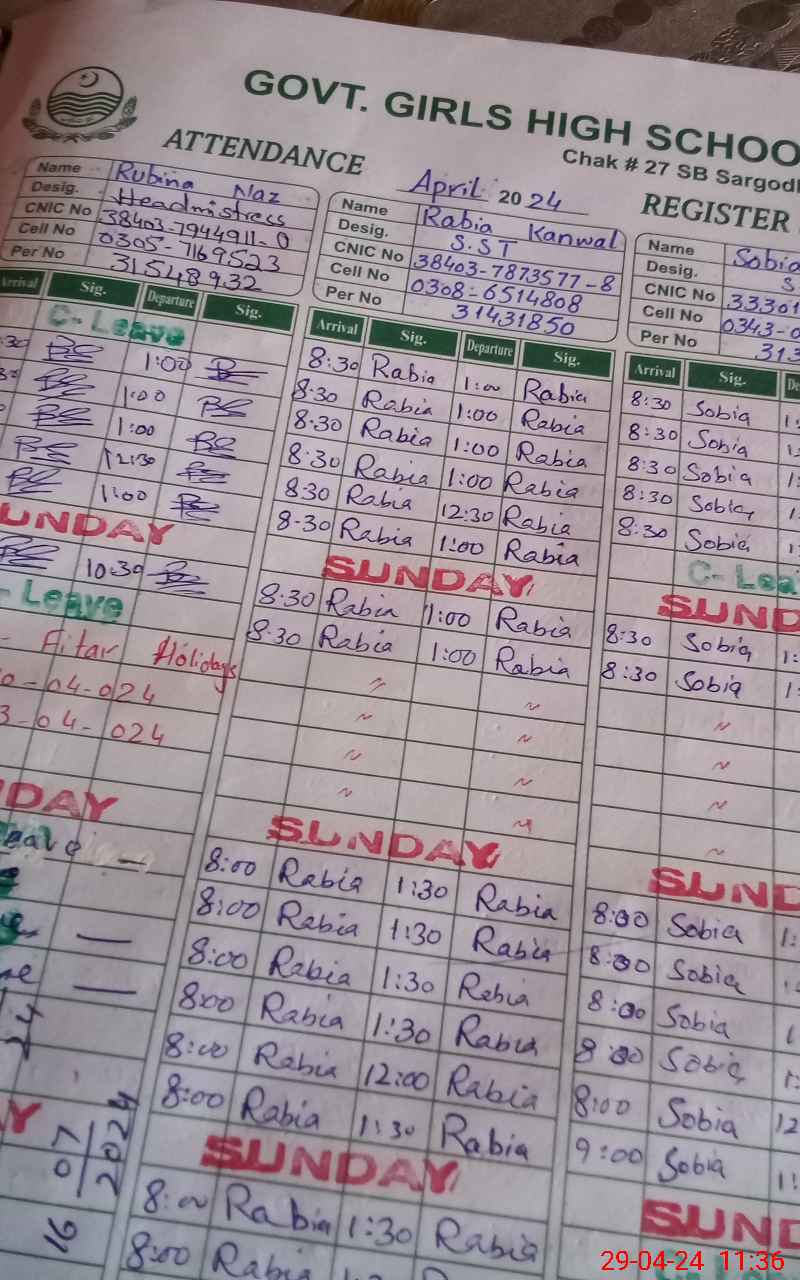 GOVT. GIRLS HIGH SCHOO
Chak # 27 SB Sargodh
ATTENDANCE April 2024 REGISTER
Name Rubina Naz
Desig. Headmistress
CNIC No 38403-7944911-0
Cell No 0305-7169523
Per No 31548932
Name Rabia Kanwal
Desig. S.ST
CNIC No 38403-7873577-8
Cell No 0308-6514808
Per No 31431850
Name Sobia
Desig. S
CNIC No 33301
Cell No 0343-0
Per No 313
Arrival Sig. Departure Sig.
C-Leave
1:00
1:00
1:00
12:30
1:00
UNDAY
10:30
- Leave
- Aitar Holidays
0-04-024
3-04-024
DAY
eave —
—
—
24
Y
16 07 2024
Arrival Sig. Departure Sig.
8:30 Rabia 1:00 Rabia
8:30 Rabia 1:00 Rabia
8:30 Rabia 1:00 Rabia
8:30 Rabia 1:00 Rabia
8:30 Rabia 12:30 Rabia
8:30 Rabia 1:00 Rabia
SUNDAY
8:30 Rabia 1:00 Rabia
8:30 Rabia 1:00 Rabia
SUNDAY
8:00 Rabia 1:30 Rabia
8:00 Rabia 1:30 Rabia
8:00 Rabia 1:30 Rabia
8:00 Rabia 1:30 Rabia
8:00 Rabia 12:00 Rabia
8:00 Rabia 1:30 Rabia
SUNDAY
8:00 Rabia 1:30 Rabia
8:00 Rabia
Arrival Sig. De
8:30 Sobia 1:
8:30 Sobia 1:
8:30 Sobia 1:
8:30 Sobia 1:
8:30 Sobia 1:
C-Lea
SUND
8:30 Sobia 1:
8:30 Sobia 1:
SUND
8:00 Sobia 1:
8:00 Sobia
8:00 Sobia 1
8:00 Sobia 1:
8:00 Sobia 12
9:00 Sobia 1:
SUND
29-04-24 11:36